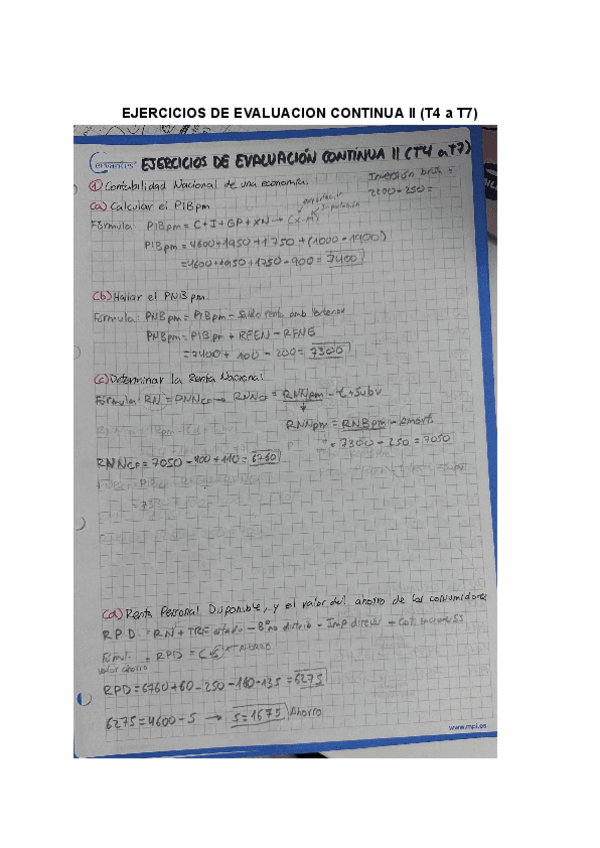 EJERCICIOS DE EVALUACION CONTINUA II (T4 a T7)
EJERCICIOS DE EVALUACIÓN CONTINUA II (T4 a T7)
① Contabilidad Nacional de una economía.
Inversión bruta =
2200-250=
(a) Calcular el PIBpm
Fórmula PIBpm = C+I+GP+XN → (X-M)
PIBpm = 4600+1950+1750+(1000-1900)
=4600+1950+1750-900 = 7400
(b) Hallar el PNBpm.
Formula: PNBpm = PIBpm -
PNBpm = PIBpm + RFEN - RFNE
=7400+100-200= 7300
(c) Determinar la Renta Nacional
Formula: RN = PNNcf → RNNcf = RNNpm - t + Subv
RNNpm = RNBpm - Amort.
" = 7300-250=7050
RNNcf = 7050-400+110 = 6760
(d) Renta Personal Disponible, y el valor del ahorro de los consumidores
RPD = RN + TRF estado - Bº no distrib - Imp direct - Cot. SS
valor ahorro
RPD = 6760+60-250-160-135 = 6275
6275=4600-S → S=1675 Ahorro
www.mpi.es